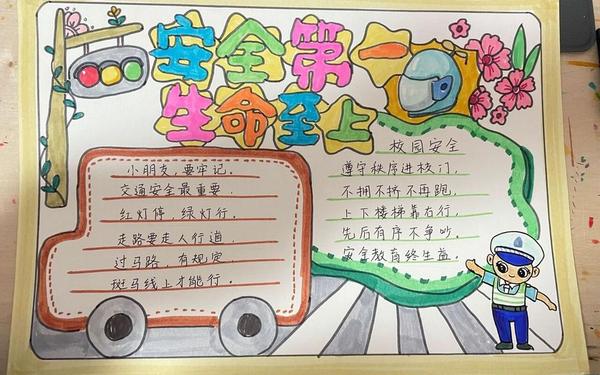 安全第一
生命至上
小朋友，要牢记。
交通安全最重要。
红灯停，绿灯行。
走路要走人行道。
过马路，有规定
斑马线上才能行。
校园安全
遵守秩序进校门，
不拥不挤不再跑，
上下楼梯靠右行，
先后有序不争吵。
安全教育终生益。